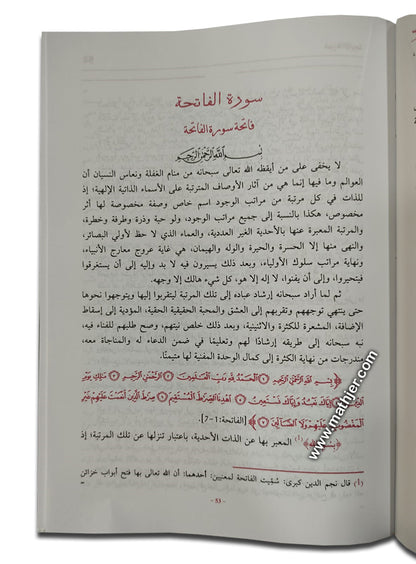 سورة الفاتحة
فاتحة سورة الفاتحة
بسم الله الرحمن الرحيم
لا يخفى على من أيقظه الله تعالى سبحانه من منام الغفلة ونعاس النسيان أن
العوالم وما فيها إنما هي من آثار الأوصاف المترتبة على الأسماء الذاتية الإلهية؛ إذ
للذات في كل مرتبة من مراتب الوجود اسم خاص وصفة مخصوصة لها أثر
مخصوص، هكذا بالنسبة إلى جميع مراتب الوجود، ولو حبة وذرة وطرفة وخطرة،
والمرتبة المعبرة عنها بالأحدية الغير العددية، والعماء الذي لا حظ لأولي البصائر،
والنهى منها إلا الحسرة والحيرة والوله والهيمان، هي غاية عروج معارج الأنبياء،
ونهاية مراتب سلوك الأولياء، وبعد ذلك يسيرون فيه لا بد وإليه إلى أن يستغرقوا
فيتحيروا، وإلى أن يفنوا، لا إله إلا هو، كل شيء هالك إلا وجهه.
ثم لما أراد سبحانه إرشاد عباده إلى تلك المرتبة ليتقربوا إليها ويتوجهوا نحوها
حتى ينتهي توجههم وتقربهم إلى العشق والمحبة الحقيقية الحقية، المؤدية إلى إسقاط
الإضافة، المشعرة للكثرة والاثنينية، وبعد ذلك خلص نيتهم، وصح طلبهم للفناء فيه،
نبه سبحانه إلى طريقه إرشادًا لهم وتعليمًا في ضمن الدعاء له والمناجاة معه،
مندرجات من نهاية الكثرة إلى كمال الوحدة المفنية لها متيمنًا.
﴿بِسْمِ اللَّهِ الرَّحْمَٰنِ الرَّحِيمِ ۝ الْحَمْدُ لِلَّهِ رَبِّ الْعَالَمِينَ ۝ الرَّحْمَٰنِ الرَّحِيمِ ۝ مَالِكِ يَوْمِ
الدِّينِ ۝ إِيَّاكَ نَعْبُدُ وَإِيَّاكَ نَسْتَعِينُ ۝ اهْدِنَا الصِّرَاطَ الْمُسْتَقِيمَ ۝ صِرَاطَ الَّذِينَ أَنْعَمْتَ عَلَيْهِمْ غَيْرِ
الْمَغْضُوبِ عَلَيْهِمْ وَلَا الضَّالِّينَ ۝﴾ [الفاتحة: 1-7].
﴿بِسْمِ اللَّهِ﴾(أ) المعبر بها عن الذات الأحدية، باعتبار تنزلها عن تلك المرتبة؛ إذ
(أ) قال نجم الدين كبرى: سُمّيت الفاتحة لمعنيين: أحدهما: أن الله تعالى بها فتح أبواب خزائن
- 53 -
www.mathier.com